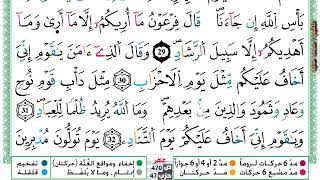 بَأْسِ ٱللَّهِ إِن جَآءَنَا ۚ قَالَ فِرْعَوْنُ مَآ أُرِيكُمْ إِلَّا مَآ أَرَىٰ وَمَآ
أَهْدِيكُمْ إِلَّا سَبِيلَ ٱلرَّشَادِ 29 وَقَالَ ٱلَّذِىٓ ءَامَنَ يَٰقَوْمِ إِنِّىٓ
أَخَافُ عَلَيْكُم مِّثْلَ يَوْمِ ٱلْأَحْزَابِ 30 مِثْلَ دَأْبِ قَوْمِ نُوحٍ
وَعَادٍ وَثَمُودَ وَٱلَّذِينَ مِنۢ بَعْدِهِمْ ۚ وَمَا ٱللَّهُ يُرِيدُ ظُلْمًا لِّلْعِبَادِ 31
وَيَٰقَوْمِ إِنِّىٓ أَخَافُ عَلَيْكُمْ يَوْمَ ٱلتَّنَادِ 32 يَوْمَ تُوَلُّونَ مُدْبِرِينَ
مدّ 6 حركات لزوماً مدّ 2 أو 4 أو 6 جوازاً إخفاء، ومواقع الغُنَّة (حركتان) تفخيم
مدّ مشبع 6 حركات مدّ حركتان إدغام، وما لا يُلفظ قلقلة
غافر
470
47